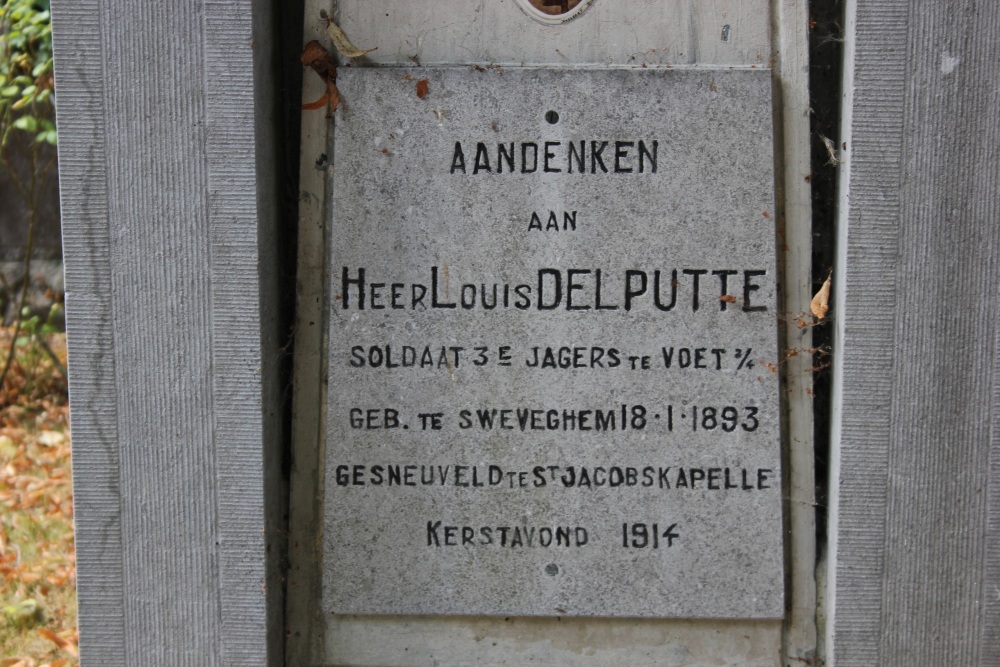 AANDENKEN
AAN
HEER LOUIS DELPUTTE
SOLDAAT 3E JAGERS TE VOET 2/4
GEB. TE SWEVEGHEM 18·1·1893
GESNEUVELD TE ST JACOBSKAPELLE
KERSTAVOND 1914